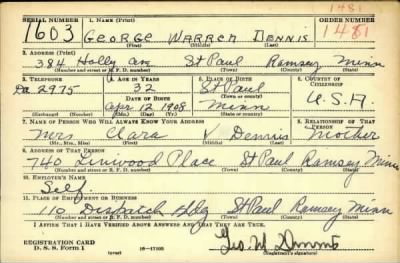 1481
SERIAL NUMBER 1. NAME (Print) ORDER NUMBER
1603 GEORGE WARREN DENNIS 1481
(First) (Middle) (Last)
2. ADDRESS (Print)
384 Holly Ave St Paul Ramsey Minn
(Number and street or R. F. D. number) (Town) (County) (State)
3. TELEPHONE 4. AGE IN YEARS 5. PLACE OF BIRTH 6. COUNTRY OF CITIZENSHIP
Da 2975 32 St Paul
DATE OF BIRTH (Town or county)
Apr 12 1908 Minn U.S.A.
(Exchange) (Number) (Mo.) (Day) (Yr.) (State or country)
7. NAME OF PERSON WHO WILL ALWAYS KNOW YOUR ADDRESS 8. RELATIONSHIP OF THAT PERSON
Mrs Clara V Dennis Mother
(Mr., Mrs., Miss) (First) (Middle) (Last)
9. ADDRESS OF THAT PERSON
740 Linwood Place St Paul Ramsey Minn
(Number and street or R. F. D. number) (Town) (County) (State)
10. EMPLOYER'S NAME
Self.
11. PLACE OF EMPLOYMENT OR BUSINESS
110 Dispatch Bldg St Paul Ramsey Minn
(Number and street or R. F. D. number) (Town) (County) (State)
I AFFIRM THAT I HAVE VERIFIED ABOVE ANSWERS AND THAT THEY ARE TRUE.
REGISTRATION CARD
D. S. S. Form 1 (over) Geo. W Dennis
(Registrant's signature)